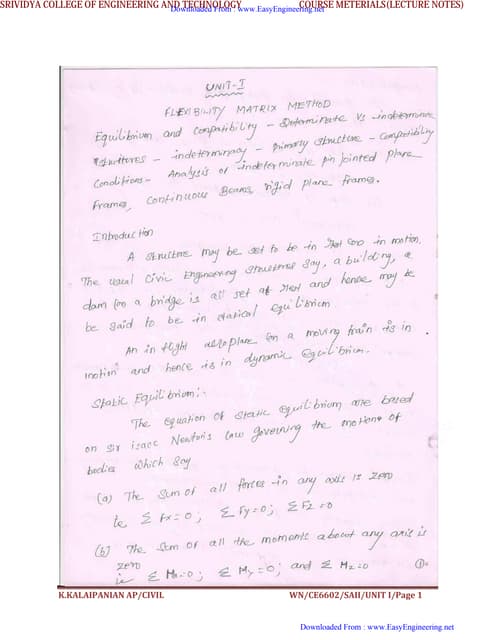 SRIVIDYA COLLEGE OF ENGINEERING AND TECHNOLOGY COURSE METERIALS(LECTURE NOTES)
Downloaded From : www.EasyEngineering.net
UNIT-I
FLEXIBILITY MATRIX METHOD
Equilibrium and Compatibility - Determinate Vs indeterminate
structures - indeterminacy - Primary structure - Compatibility
Conditions - Analysis of indeterminate pin jointed plane
Frames, Continuous Beams, rigid plane frames.
Introduction
A structure may be set to be in rest (or) in motion.
The usual Civil Engineering structures say, a building, a
dam (or) a bridge is all set at rest and hence may be
be said to be in statical equilibrium.
An in flight aeroplane (or) a moving train is in
motion and hence is in dynamic equilibrium.
Static Equilibrium:-
The equation of static equilibrium are based
on sir isacc Newton's law governing the motion of
bodies which say
(a) The sum of all forces in any axis is zero
ie Σ Fx = 0; Σ Fy = 0; Σ Fz = 0
(b) The sum of all the moments about any axis is
zero
ie Σ Mx = 0; Σ My = 0; and Σ Mz = 0 ①
K.KALAIPANIAN AP/CIVIL WN/CE6602/SAII/UNIT I/Page 1
Downloaded From : www.EasyEngineering.net